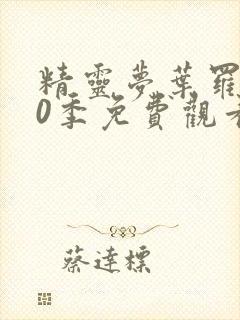 精靈夢葉羅
0季免費觀看
蔡達標